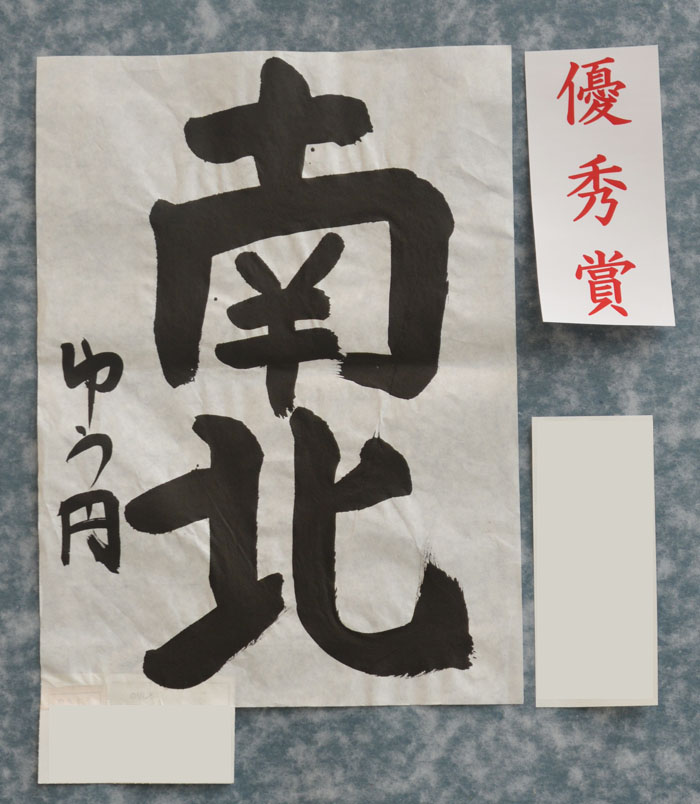 優秀賞
南北
ゆう円